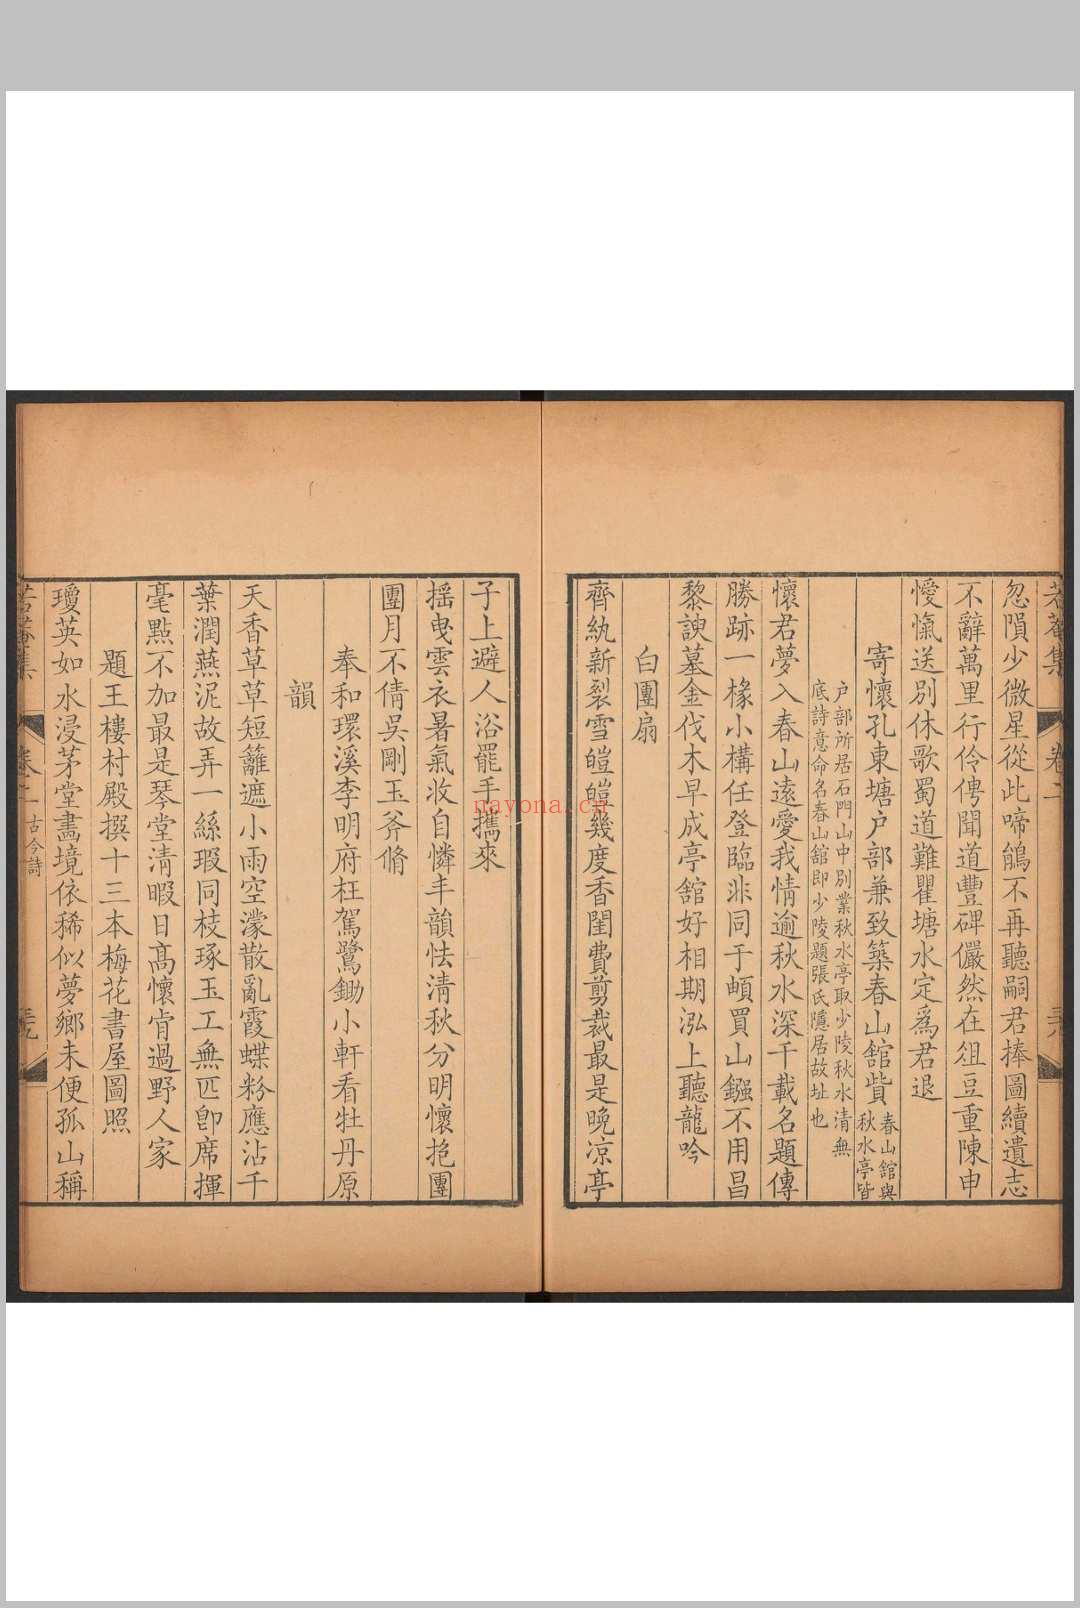 若菴集
卷二
忽隕少微星從此啼鵑不再聽嗣君捧圖續遺志
不辭萬里行伶俜聞道豐碑儼然在俎豆重陳申
懓愾送別休歌蜀道難瞿塘水定爲君退
寄懷孔東塘户部兼致築春山館貲
春山館與
秋水亭皆
户部所居石門山中别業秋水亭取少陵秋水清無
底詩意命名春山舘即少陵題張氏隱居故址也
懷君夢入春山遠愛我情逾秋水深千載名題傳
勝跡一椽小構任登臨非同于頔買山鏹不用昌
黎諛墓金伐木早成亭舘好相期泓上聽龍吟
白團扇
齊紈新裂雪皚皚幾度香閨費剪裁最是晚凉亭
子上避人浴罷手攜來
摇曳雲衣暑氣收自憐丰韻怯清秋分明懷抱團
團月不倩吳剛玉斧脩
奉和環溪李明府枉駕鷺鋤小軒看牡丹原
韻
天香草草短籬遮小雨空濛散亂霞蝶粉應沾千
葉潤燕泥故弄一絲瑕同枝琢玉工無匹卽席揮
毫點不加最是琴堂清暇日高懷肯過野人家
題王樓村殿撰十三本梅花書屋圖照
瓊英如水浸茅堂畵境依稀似夢鄉未便孤山稱
若菴集
卷二
古今詩
nayona.cn